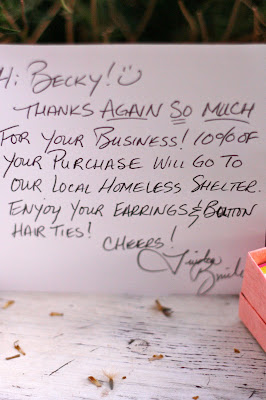 Hi Becky! ☺
Thanks Again So Much
For Your Business! 10% of
Your Purchase Will Go To
Our Local Homeless Shelter.
Enjoy Your Earrings & Button
Hair Ties!
Cheers!